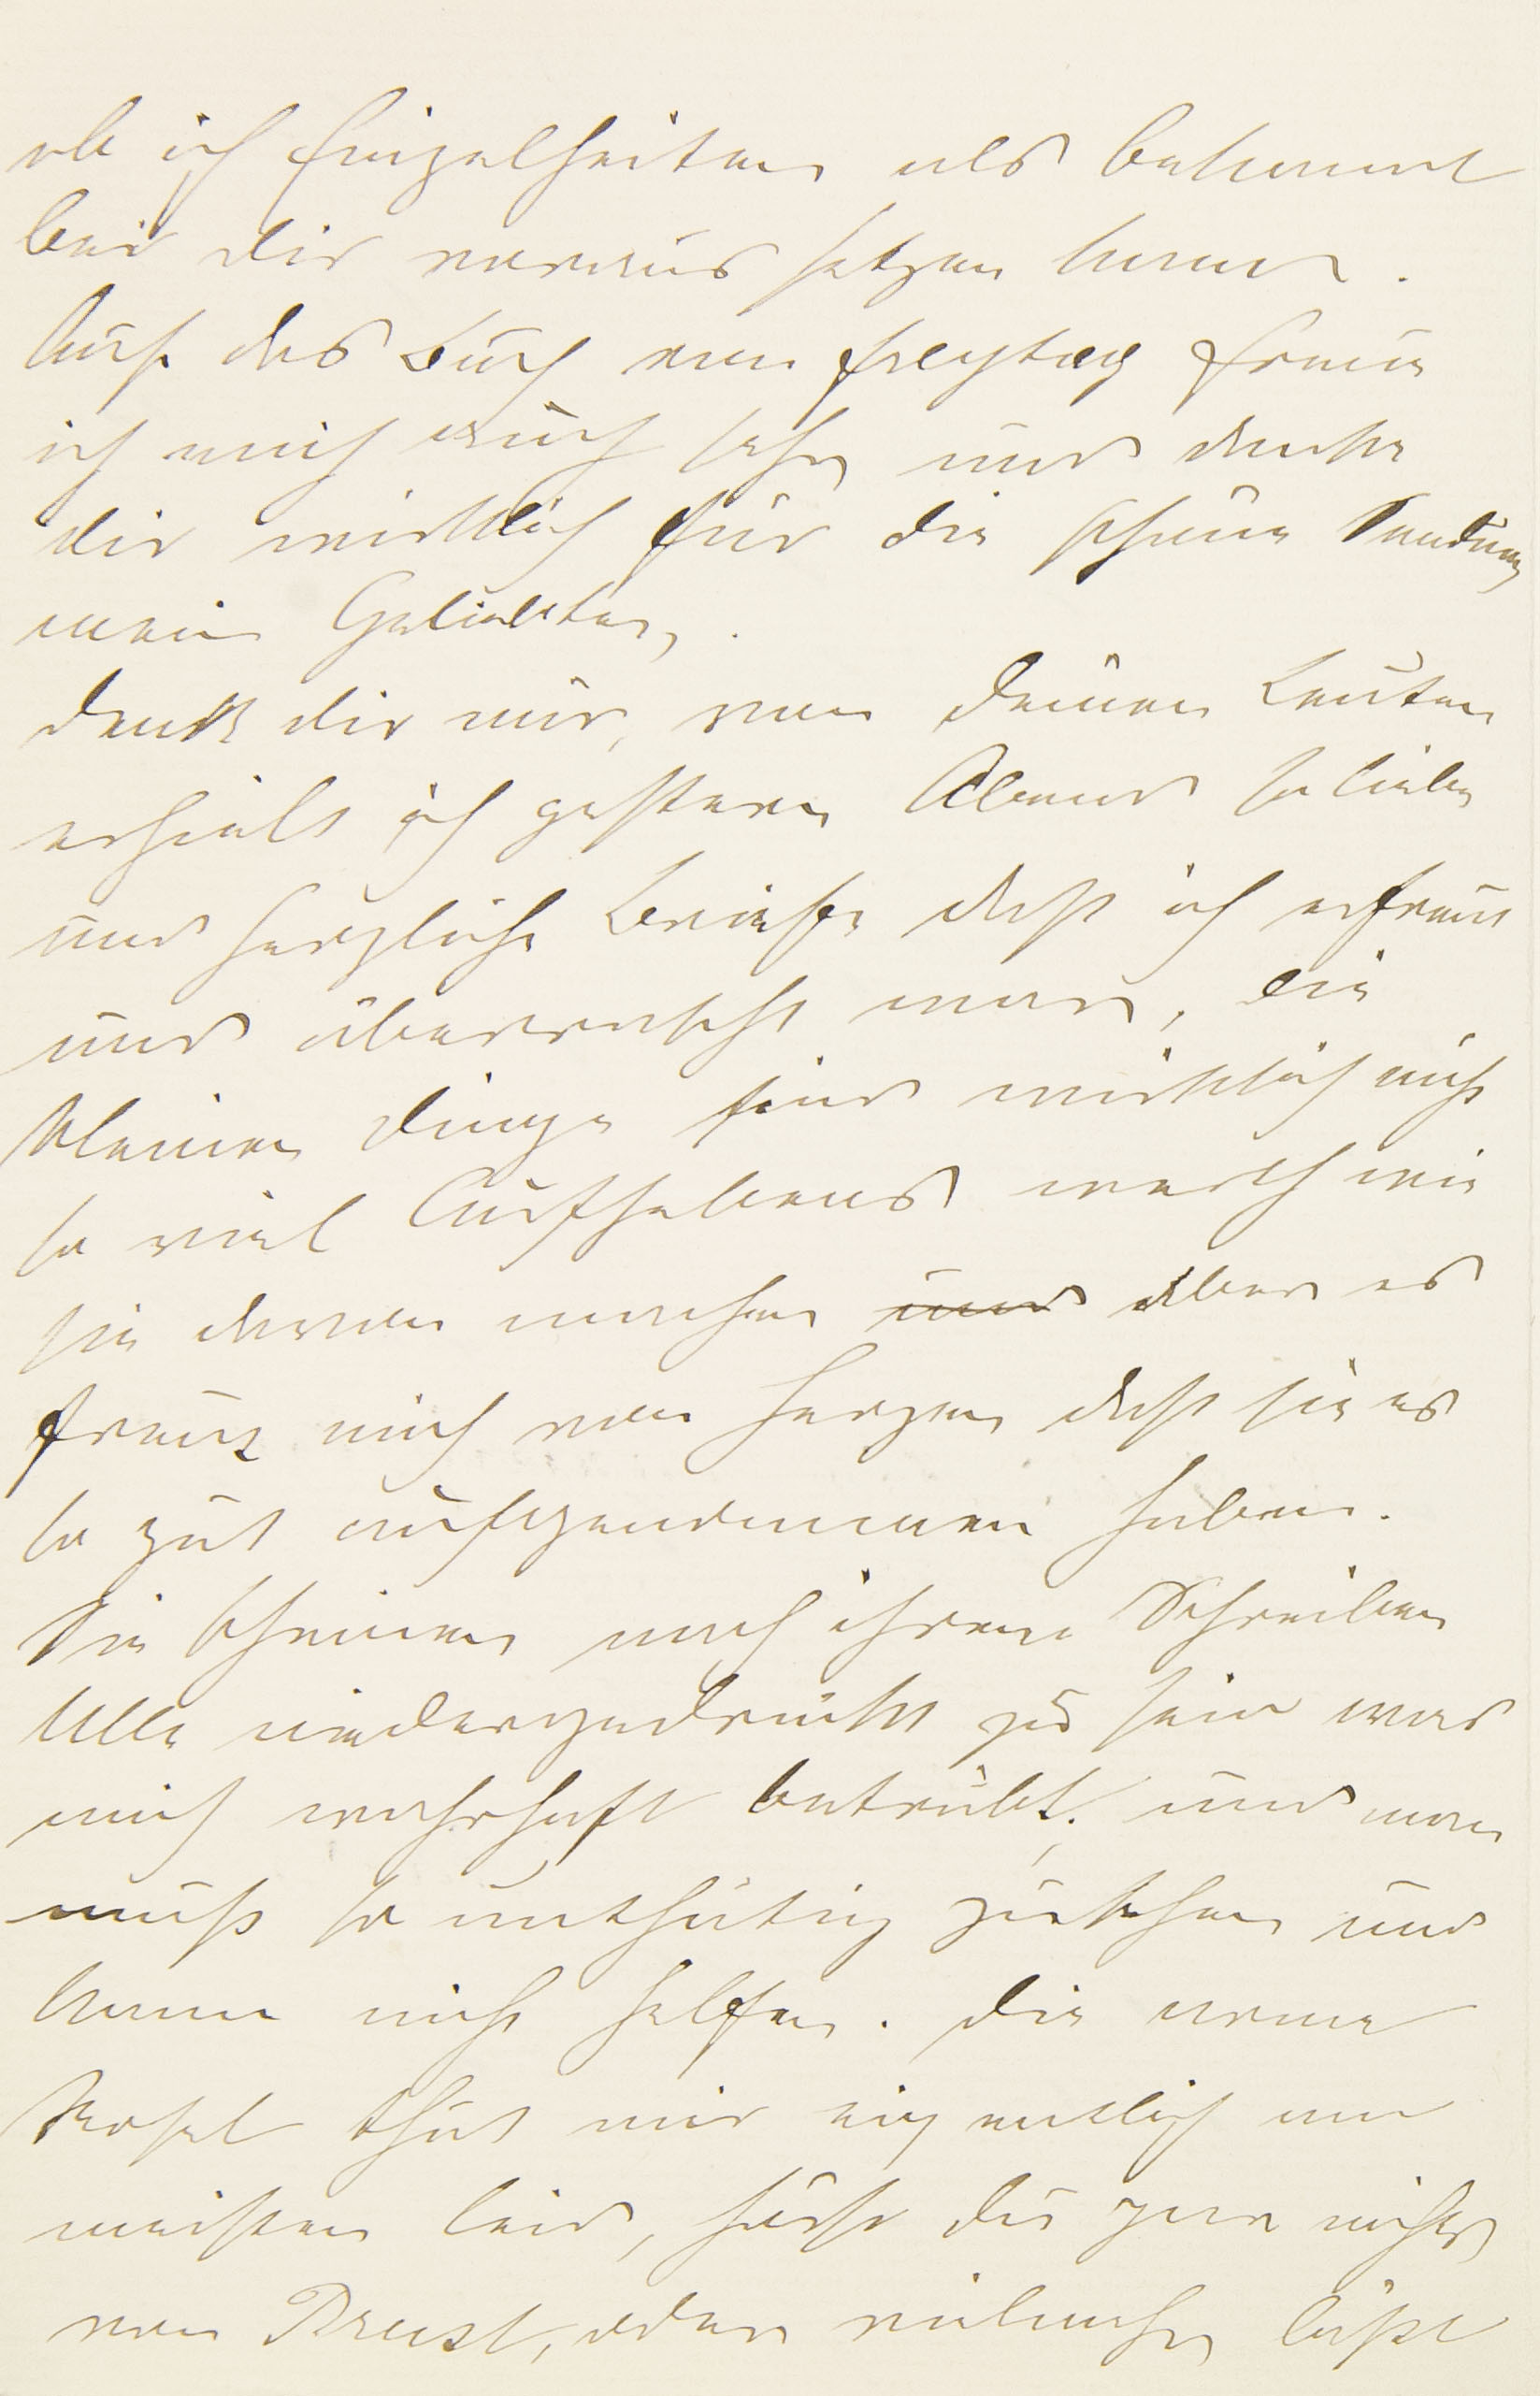 ob ich Einzelheiten als bekannt
bei dir voraus setzen kann.
Auf das Buch von Freytag freue
ich mich auch sehr und danke
dir wirklich für die schöne Sendung
mein Geliebter,.
denk dir nur, von deinen Leuten
erhielt ich gestern Abend so liebe
und herzliche Briefe daß ich erfreut
und überrascht war, die
kleinen Dinge sind wirklich nicht
so viel Aufhebens werth wie
sie davon machen und aber es
freut mich von Herzen daß sie es
so gut aufgenommen haben.
Sie scheinen nach ihrem Schreiben
Alle niedergedrückt zu sein was
mich wahrhaft betrübt, und man
muß so unthätig zusehen und
kann nicht helfen. Die arme
Rosel thut mir eigentlich am
meisten leid, hörst du gar nichts
von Prust, oder vielmehr läßt